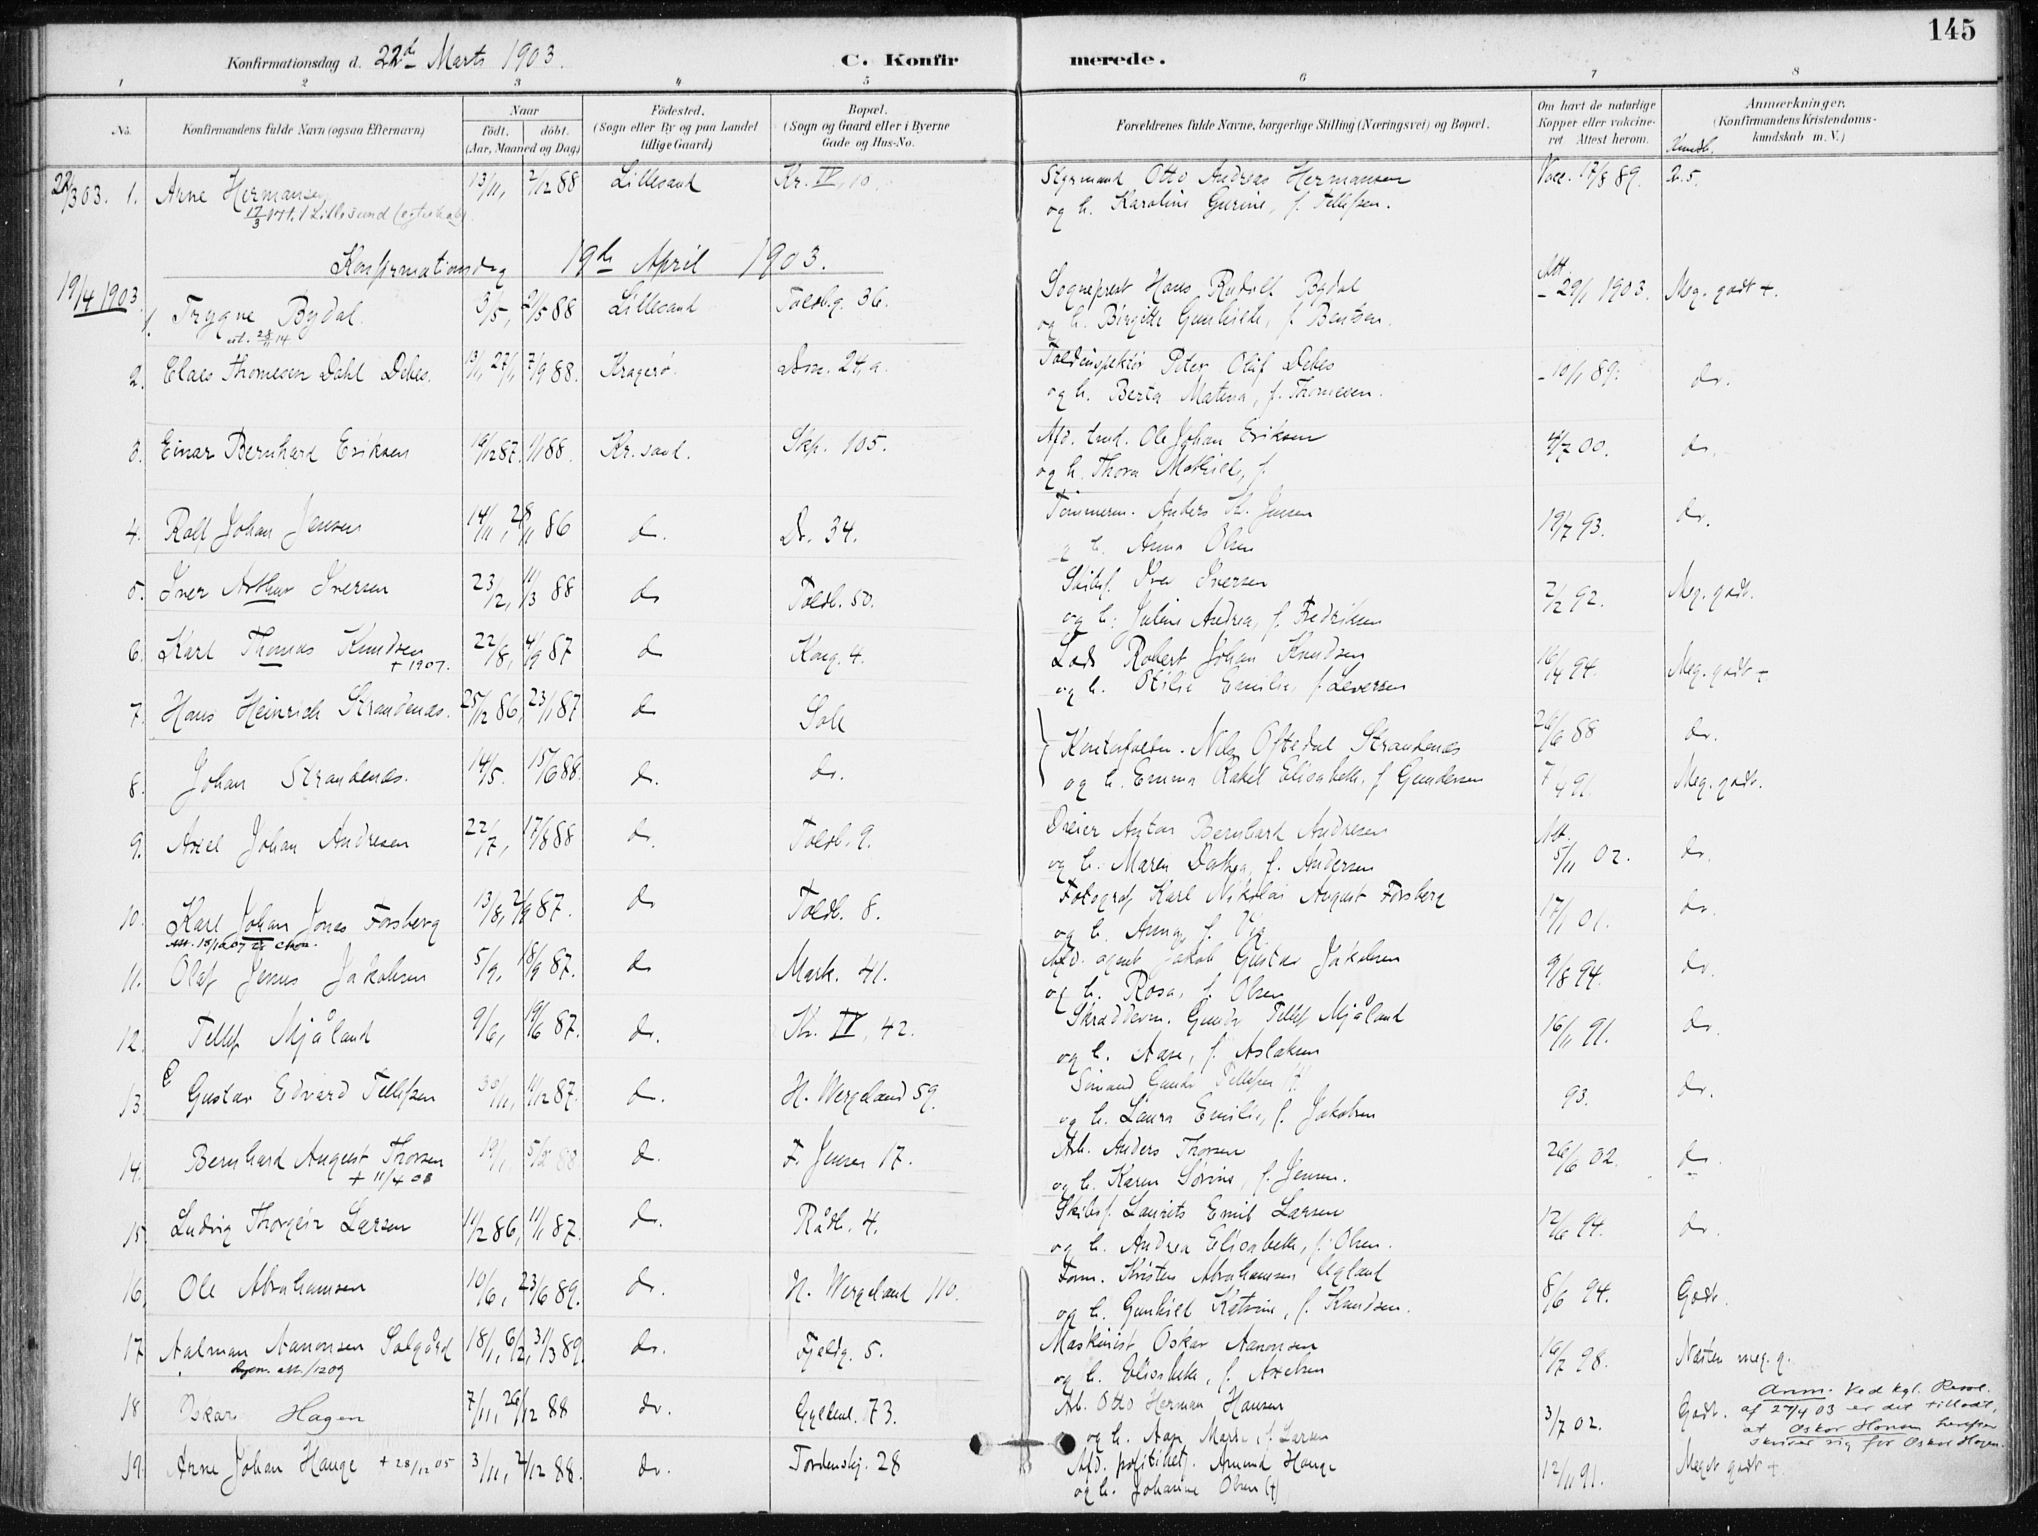 145
Konfirmationsdag d. 22d Marts 1903. C. Konfirmerede.
1 2 3 4 5 6 7 8
No. Konfirmandens fulde Navn (ogsaa Efternavn) Naar Födested. Bopæl. Forældrenes fulde Navne, borgerlige Stilling (Næringsvei) og Bopæl. Om havt de naturlige Anmærkninger.
födt. döbt. (Sogn eller By og paa Landet (Sogn og Gaard eller i Byerne Kopper eller vakcine- (Konfirmandens Kristendoms-
(Aar, Maaned og Dag) tillige Gaard) Gade og Hus-No. ret Attest herom. kundskab m. V.)
22/3 03. 1. Arne Hermansen 13/11, 2/12 88 Lillesand Kr. IV, 10. Styrmand Otto Andreas Hermansen Vacc. 17/8 89.
og h. Karoline Gurine, f. Tellefsen.
Konfirmationsdag 19de April 1903.
19/4 1903.
1. Trygve Bydal 3/5, 2/5 88 Lillesand Toldbg. 36. Sogneprest Hans Rudolf Bydal Att. 29/1 1903. Meg. godt +.
og h. Birgitte Gunhilde, f. Bentsen.
2. Claes Thomesen Dahl Debes. 7/9 88. Kragerø. Dm. 24.a. Toldinspektör Peter Olaf Debes 10/1 89. do.
og h. Berta Matena, f. Thomesen.
3. Einar Bernhard Eriksen 19/12 87. 1/1 88. Kr.sand. Skp. 105. Afd. Ole Johan Eriksen 4/7 00. do.
og h. Thora Mathilde, f.
4. Ralf Johan Jensen 14/11, 28/11 86 do. Dr. 34. Tömmerm. Anders Jensen 19/7 93. do.
og h. Anna Olsen
5. Iver Arthur Iversen 23/2, 11/3 88 do Toldb. 50. Skibsf. Iver Iversen 2/2 92. Meg. godt.
og h. Juline Andrea, f. Fredriksen
6. Karl Thomas Knudsen 22/8, 4/9 87 do Kong. 4. Lods Robert Johan Knudsen 16/4 94. Meg. godt +
+ 1907. og h. Otilie Emilie, f. Seversen
7. Hans Heinrich Strandenæs. 25/12 86, 23/1 87 do 26/6 88 do.
Nils Oftedal Strandenæs
8. Johan Strandenæs. 14/5. 15/6 88. do. do. og h. Emma Rakel Elisabeth, f. Gundersen 7/4 91. Meg. godt.
9. Axel Johan Andresen 22/7, 17/8 88 do. Toldb. 9. Dreier Anton Bernhard Andresen Att. 5/11 02. do.
og h. Maren Dortea, f. Andersen
10. Karl Johan Jonas Forsberg 13/8, 2/9 87. do Toldb. 8. Fotograf Karl Nikolai August Forsberg 17/1 01. do.
og h. Anna, f.
11. Olaf Jenus Jakobsen 5/9, 18/9 87. do Mark. 41. Afd. agent Jakob Gustav Jakobsen 9/8 94. do.
og h. Rosa, f. Olsen
12. Tellef Mjåland 9/6, 19/6 87. do. Kr. IV, 42. Skræddem. Gunder Tellef Mjåland 16/11 91. do.
og h. Aase, f. Aslaksen
13. Gustav Edvard Tellefsen 30/11, 11/12 87. do. H. Wergeland 59. Sömand Gunder Tellefsen 93. do.
og h. Laura Emilie, f. Jakobsen
14. Bernhard August Thorsen 19/1, 5/2 88 do. F. Jensen 17. Arb. Anders Thorsen 26/6 02. do.
+ 11/4 08 og h. Karen Sörine, f. Jensen.
15. Ludvig Thorgeir Larsen 11/12 86, 11/1 87. do. Rådh. 4. Skibsf. Laurits Emil Larsen 12/6 94. do.
og h. Andrea Elisabeth, f. Olsen.
16. Ole Abrahamsen 10/6, 23/6 89. do. H. Wergeland 110. Form. Kristen Abrahamsen Ugland 8/6 94. Godt.
og h. Gunhild Katrine, f. Knudsen.
17. Aalman Aanonsen Solgård 31/3 89. do. Fjeldg. 5. Maskinist Oskar Aanonsen 16/7 98. Næsten meg. g.
og h. Elisabeth, f. Axelsen
18 Oskar Hagen 7/11, 26/12 88 do. Gyldenl. 73. Arb. Otto Herman Hansen 3/7 02. Godt. Anm. Ved kgl. Resol.
af 27/4 03 er det tilladt,
og h. Marie, f. Larsen at Oskar Hansen herefter
skriver sig for Oskar Hagen.
19. Arne Johan Hauge + 28/12 05 3/11, 2/12 88. do. Tordenskj. 28 Afd. politibetj. Amund Hauge 12/11 91. Meget godt +
og h. Johanne Olsen (+)